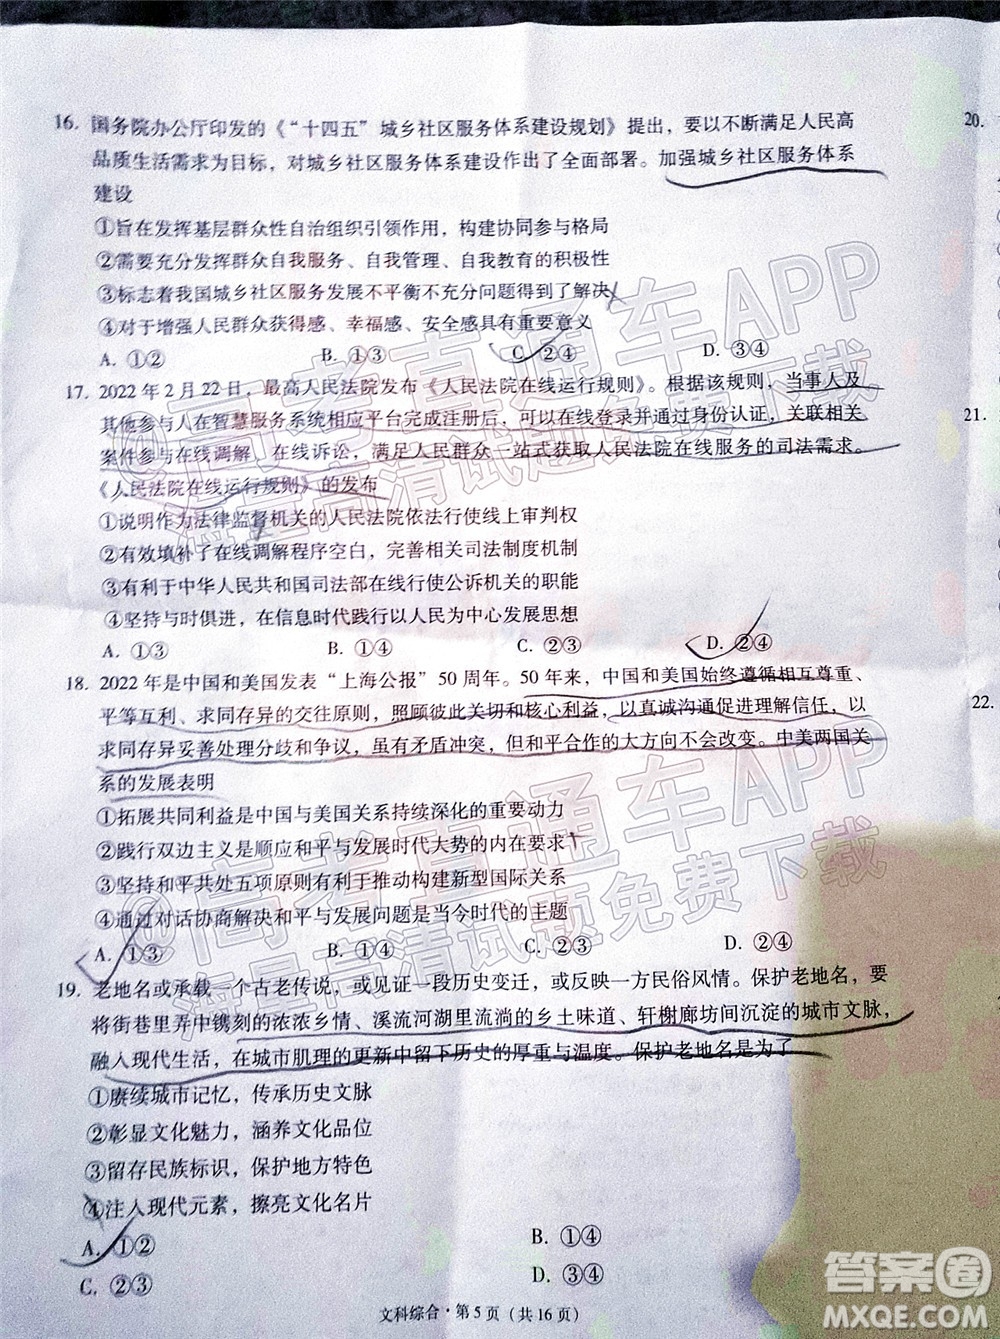 16. 国务院办公厅印发的《“十四五”城乡社区服务体系建设规划》提出，要以不断满足人民高
品质生活需求为目标，对城乡社区服务体系建设作出了全面部署。加强城乡社区服务体系
建设
①旨在发挥基层群众性自治组织引领作用，构建协同参与格局
②需要充分发挥群众自我服务、自我管理、自我教育的积极性
③标志着我国城乡社区服务发展不平衡不充分问题得到了解决
④对于增强人民群众获得感、幸福感、安全感具有重要意义
A. ①② B. ①③ C. ②④ D. ③④
17. 2022年2月22日，最高人民法院发布《人民法院在线运行规则》。根据该规则，当事人及
其他参与人在智慧服务系统相应平台完成注册后，可以在线登录并通过身份认证，关联相关
案件参与在线调解、在线诉讼，满足人民群众一站式获取人民法院在线服务的司法需求。
《人民法院在线运行规则》的发布
①说明作为法律监督机关的人民法院依法行使线上审判权
②有效填补了在线调解程序空白，完善相关司法制度机制
③有利于中华人民共和国司法部在线行使公诉机关的职能
④坚持与时俱进，在信息时代践行以人民为中心发展思想
A. ①③ B. ①④ C. ②③ D. ②④
18. 2022年是中国和美国发表“上海公报”50周年。50年来，中国和美国始终遵循相互尊重、
平等互利、求同存异的交往原则，照顾彼此关切和核心利益，以真诚沟通促进理解信任，以
求同存异妥善处理分歧和争议，虽有矛盾冲突，但和平合作的大方向不会改变。中美两国关
系的发展表明
①拓展共同利益是中国与美国关系持续深化的重要动力
②践行双边主义是顺应和平与发展时代大势的内在要求
③坚持和平共处五项原则有利于推动构建新型国际关系
④通过对话协商解决和平与发展问题是当今时代的主题
A. ①③ B. ①④ C. ②③ D. ②④
19. 老地名或承载一个古老传说，或见证一段历史变迁，或反映一方民俗风情。保护老地名，要
将街巷里弄中镌刻的浓浓乡情、溪流河湖里流淌的乡土味道、轩榭廊坊间沉淀的城市文脉，
融入现代生活，在城市肌理的更新中留下历史的厚重与温度。保护老地名是为了
①赓续城市记忆，传承历史文脉
②彰显文化魅力，涵养文化品位
③留存民族标识，保护地方特色
④注入现代元素，擦亮文化名片
A. ①② B. ①④
C. ②③ D. ③④
文科综合·第5页（共16页）
20.
21.
22.
@高考直通车APP
海量高清试题免费下载
@高考直通车APP
海量高清试题免费下载
答案圈
MXQE.COM